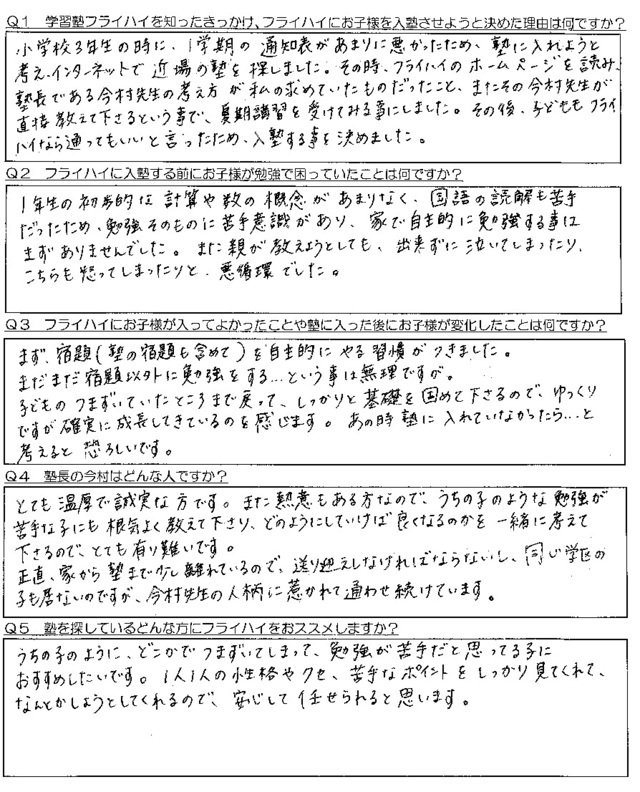 Q1 学習塾フライハイを知ったきっかけ、フライハイにお子様を入塾させようと決めた理由は何ですか？
小学校3年生の時に、1学期の通知表があまりに悪かったため、塾に入れようと
考え、インターネットで近場の塾を探しました。その時、フライハイのホームページを読み、
塾長である今村先生の考え方が私の求めていたものだったこと、またその今村先生が
直接教えて下さるという事で、夏期講習を受けてみる事にしました。その後、子どももフライ
ハイなら通ってもいいと言ったため、入塾する事を決めました。
Q2 フライハイに入塾する前にお子様が勉強で困っていたことは何ですか？
1年生の初歩的な計算や数の概念があまりなく、国語の読解も苦手
だったため、勉強そのものに苦手意識があり、家で自主的に勉強する事は
まずありませんでした。また親が教えようとしても、出来ずに泣いてしまったり、
こちらも怒ってしまったりと、悪循環でした。
Q3 フライハイにお子様が入ってよかったことや塾に入った後にお子様が変化したことは何ですか？
まず、宿題(塾の宿題も含めて)を自主的にやる習慣がつきました。
まだまだ宿題以外に勉強をする…という事は無理ですが。
子どものつまずいていたところまで戻って、しっかりと基礎を固めて下さるので、ゆっくり
ですが確実に成長してきているのを感じます。あの時塾に入れていなかったら…と
考えると恐ろしいです。
Q4 塾長の今村はどんな人ですか？
とても温厚で誠実な方です。また熱意もある方なので、うちの子のような勉強が
苦手な子にも根気よく教えて下さり、どのようにしていけば良くなるのかを一緒に考えて
下さるので、とても有り難いです。
正直、家から塾まで少し離れているので、送り迎えしなければならないし、同じ学区の
子も居ないのですが、今村先生の人柄に惹かれて通わせ続けています。
Q5 塾を探しているどんな方にフライハイをおススメしますか？
うちの子のように、どこかでつまずいてしまって、勉強が苦手だと思ってる子に
おすすめしたいです。1人1人の性格やクセ、苦手なポイントをしっかり見てくれて、
なんとかしようとしてくれるので、安心して任せられると思います。